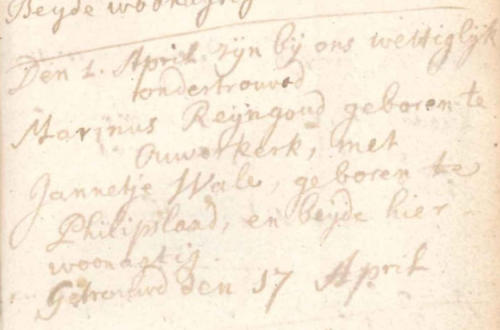 Beyde woonagtig
Den 1. April zijn bij ons wettiglijk
ondertrouwd
Marinus Reijngoud geboren te
Ouwerkerk, met
Jannetje Wale, geboren te
Philipslaad, en beijde hier
woonagtig.
Getrouwd den 17 April